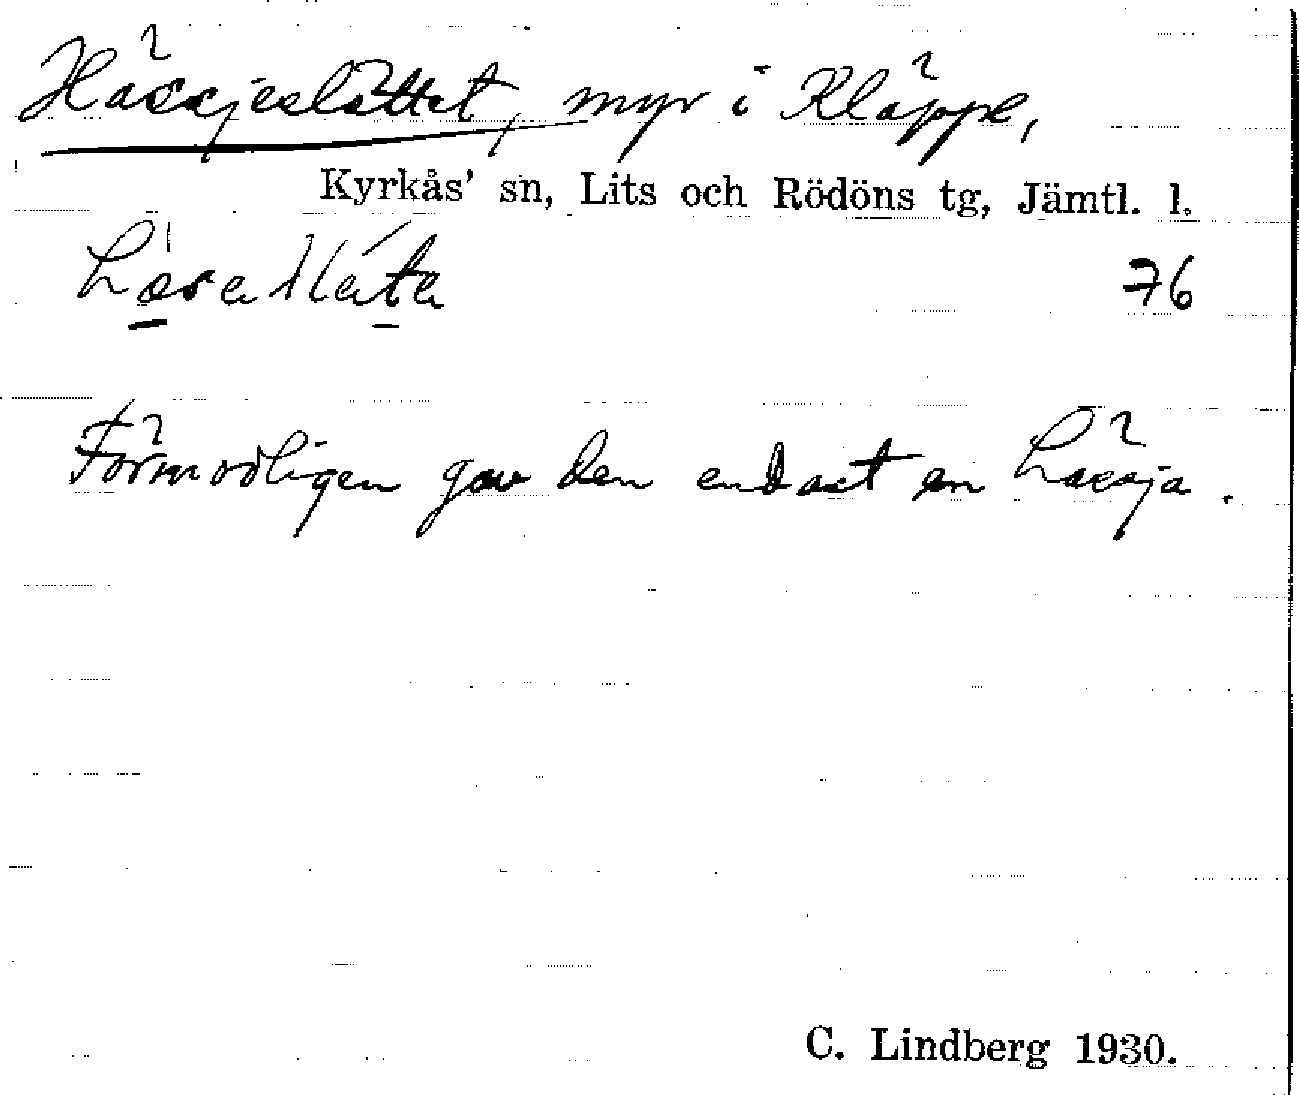 Hässjeslåttet, myr i Kläppe,
Kyrkås' sn, Lits och Rödöns tg, Jämtl. l.
76
Förmodligen gav den endast en hässja.
C. Lindberg 1930.